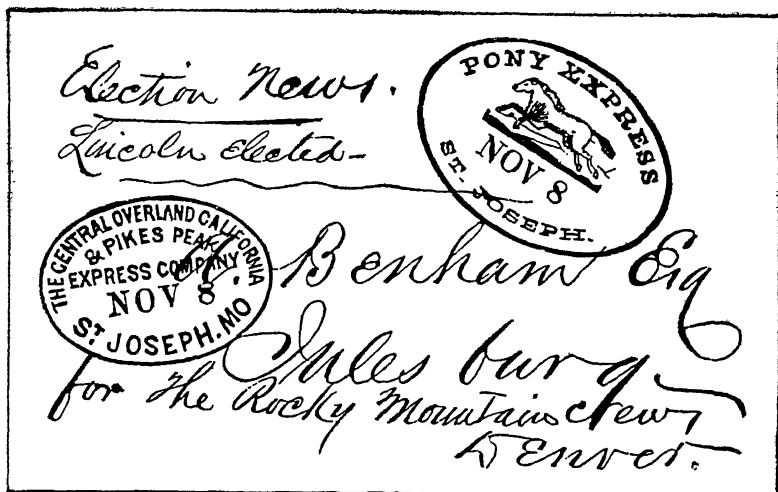 Election News.
Lincoln elected-
PONY EXPRESS
NOV 8
ST. JOSEPH.
THE CENTRAL OVERLAND CALIFORNIA
& PIKES PEAK
EXPRESS COMPANY
NOV 8
ST JOSEPH. MO
Benham Esq
Julesburg
for The Rocky Mountain News
Denver.